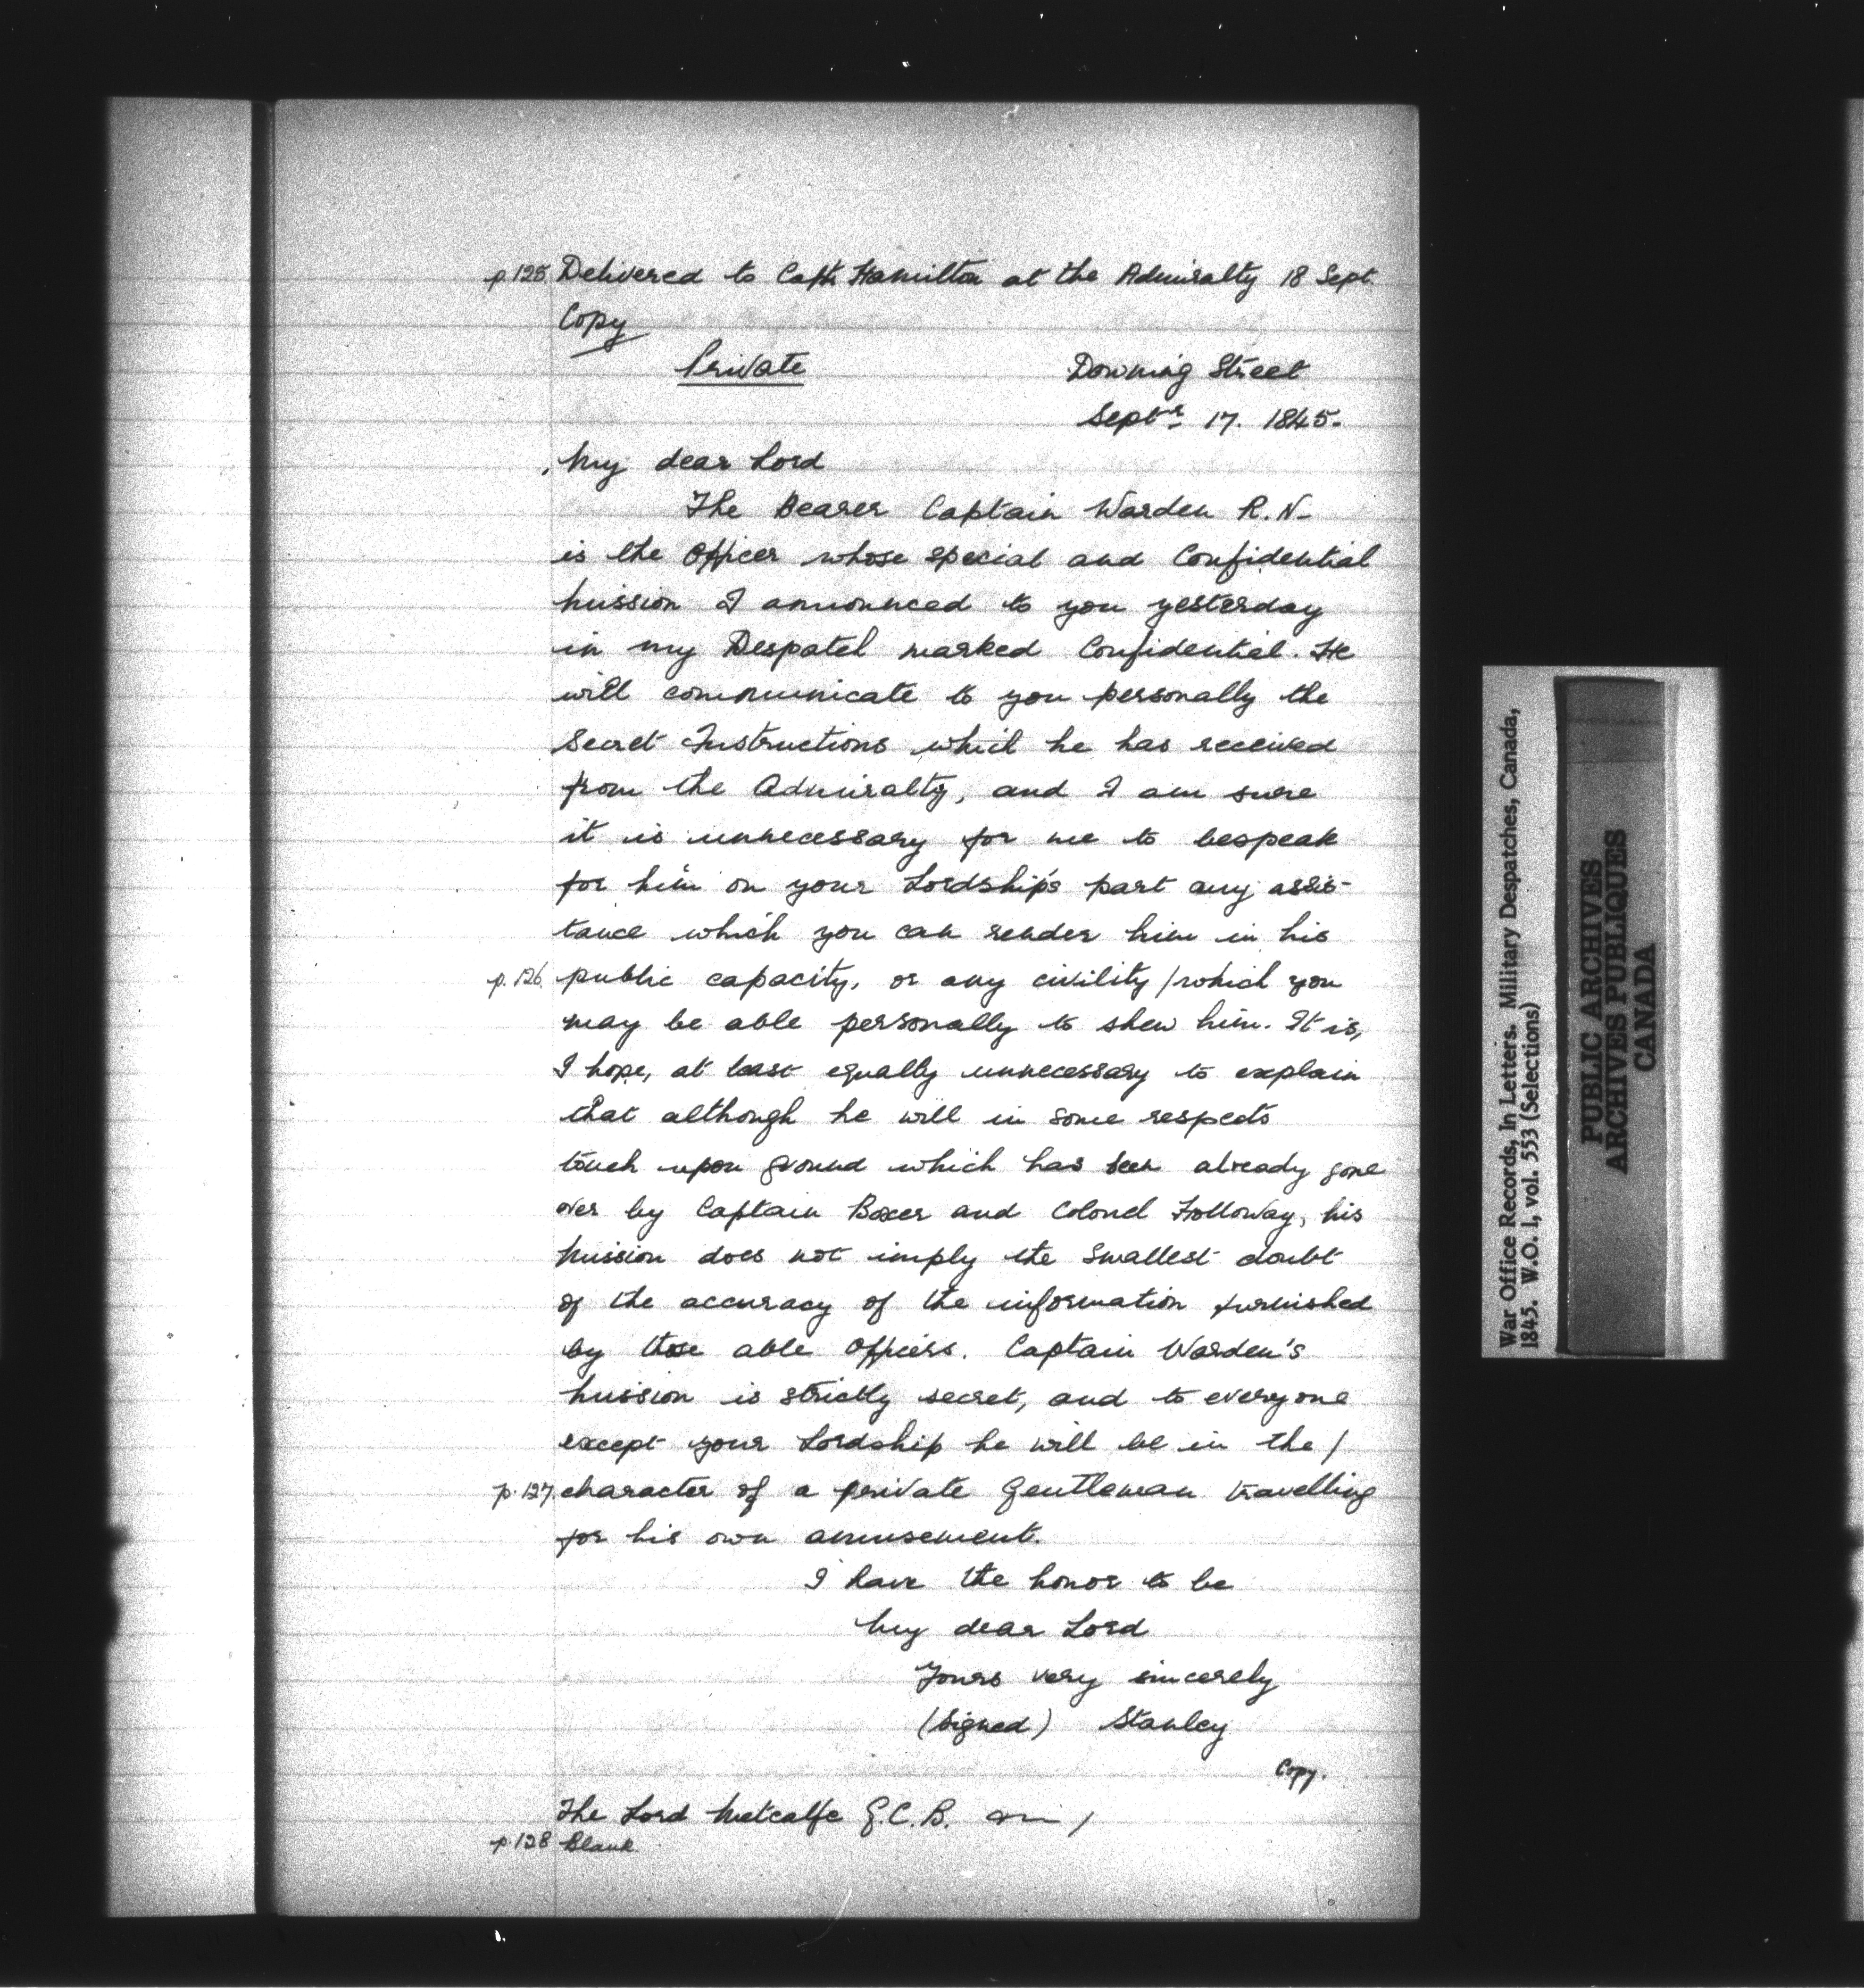 p.125 Delivered to Captn Hamilton at the Admiralty 18 Sept.
Copy
Private Downing Street
Septr 17. 1845-
My dear Lord
The Bearer Captain Warden R.N-
is the Officer whose special and Confidential
Mission I announced to you yesterday
in my Despatch marked Confidential. He
will communicate to you personally the
Secret Instructions which he has received
from the Admiralty, and I am sure
it is unnecessary for me to bespeak
for him on your Lordship's part any assis-
tance which you can render him in his
p.126. public capacity, or any civility / which you
may be able personally to shew him. It is,
I hope, at least equally unnecessary to explain
that although he will in some respects
touch upon ground which has been already gone
over by Captain Boxer and Colonel Holloway, his
Mission does not imply the Smallest doubt
of the accuracy of the information furnished
by those able Officers. Captain Warden's
Mission is strictly secret, and to everyone
except your Lordship he will be in the /
p.127. character of a private Gentleman travelling
for his own amusement.
I have the honor to be
My dear Lord
Yours very sincerely
(Signed) Stanley
Copy.
The Lord Metcalfe G.C.B. /
p.128 Blank.
War Office Records, In Letters. Military Despatches, Canada,
1845. W.O. 1, vol. 553 (Selections)
PUBLIC ARCHIVES
ARCHIVES PUBLIQUES
CANADA